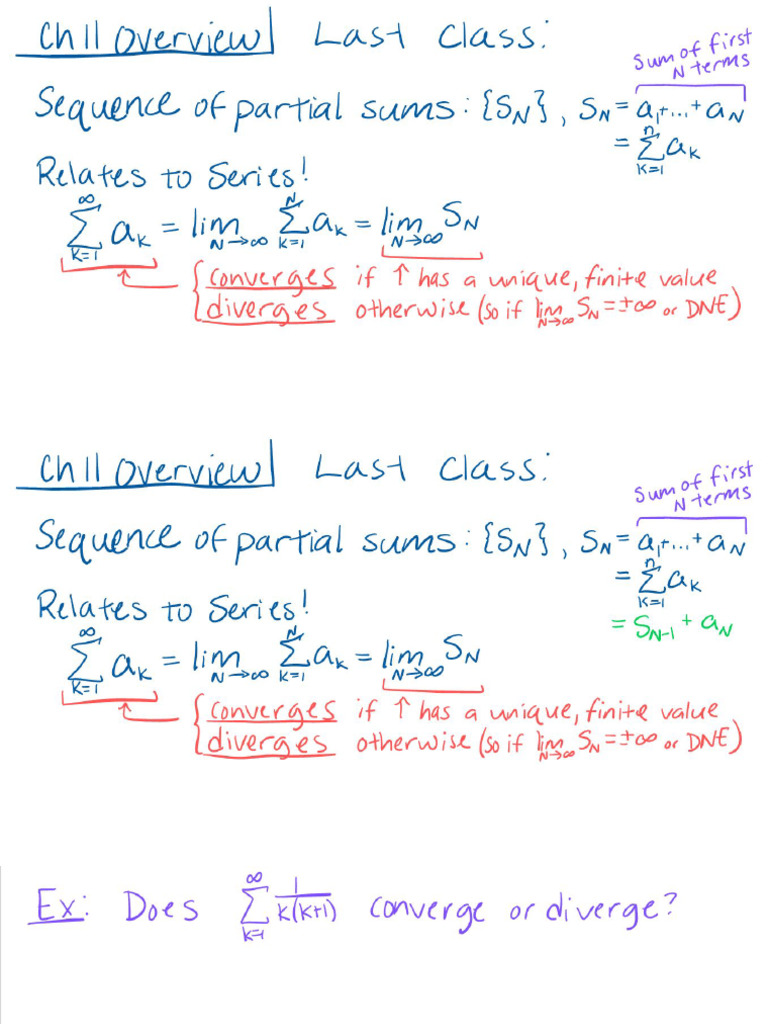 Ch 11 Overview Last Class:
Sum of first
N terms
Sequence of partial sums: {S_N}, S_N = a_1 + ... + a_N
= \sum_{k=1}^{n} a_k
Relates to Series!
\sum_{k=1}^{∞} a_k = lim_{N→∞} \sum_{k=1}^{N} a_k = lim_{N→∞} S_N
{ converges if ↑ has a unique, finite value
diverges otherwise (so if lim_{N→∞} S_N = ±∞ or DNE)
Ch 11 Overview Last Class:
Sum of first
N terms
Sequence of partial sums: {S_N}, S_N = a_1 + ... + a_N
= \sum_{k=1}^{n} a_k
Relates to Series!
= S_{N-1} + a_N
\sum_{k=1}^{∞} a_k = lim_{N→∞} \sum_{k=1}^{N} a_k = lim_{N→∞} S_N
{ converges if ↑ has a unique, finite value
diverges otherwise (so if lim_{N→∞} S_N = ±∞ or DNE)
Ex: Does \sum_{k=1}^{∞} \frac{1}{k(k+1)} converge or diverge?